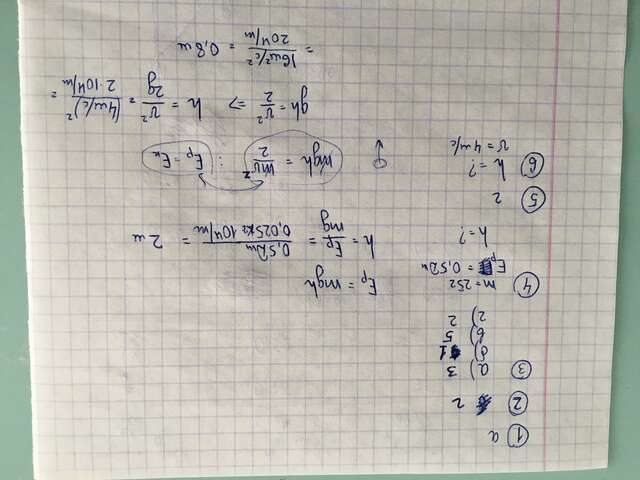 ① а
② г
③ а) 3
б) 1
в) 5
г) 2
④ m = 25г
Eр = 0,5Дж
h = ?
Eр = mgh
h = Eр/mg = 0,5Дж/0,025кг·10Н/кг = 2м
⑤ г
⑥ h = ?
v = 4м/с
mgh = mv²/2 ; Eр = Eк
gh = v²/2 => h = v²/2g = (4м/с)²/2·10Н/кг =
= 16м²/с²/20Н/кг = 0,8м